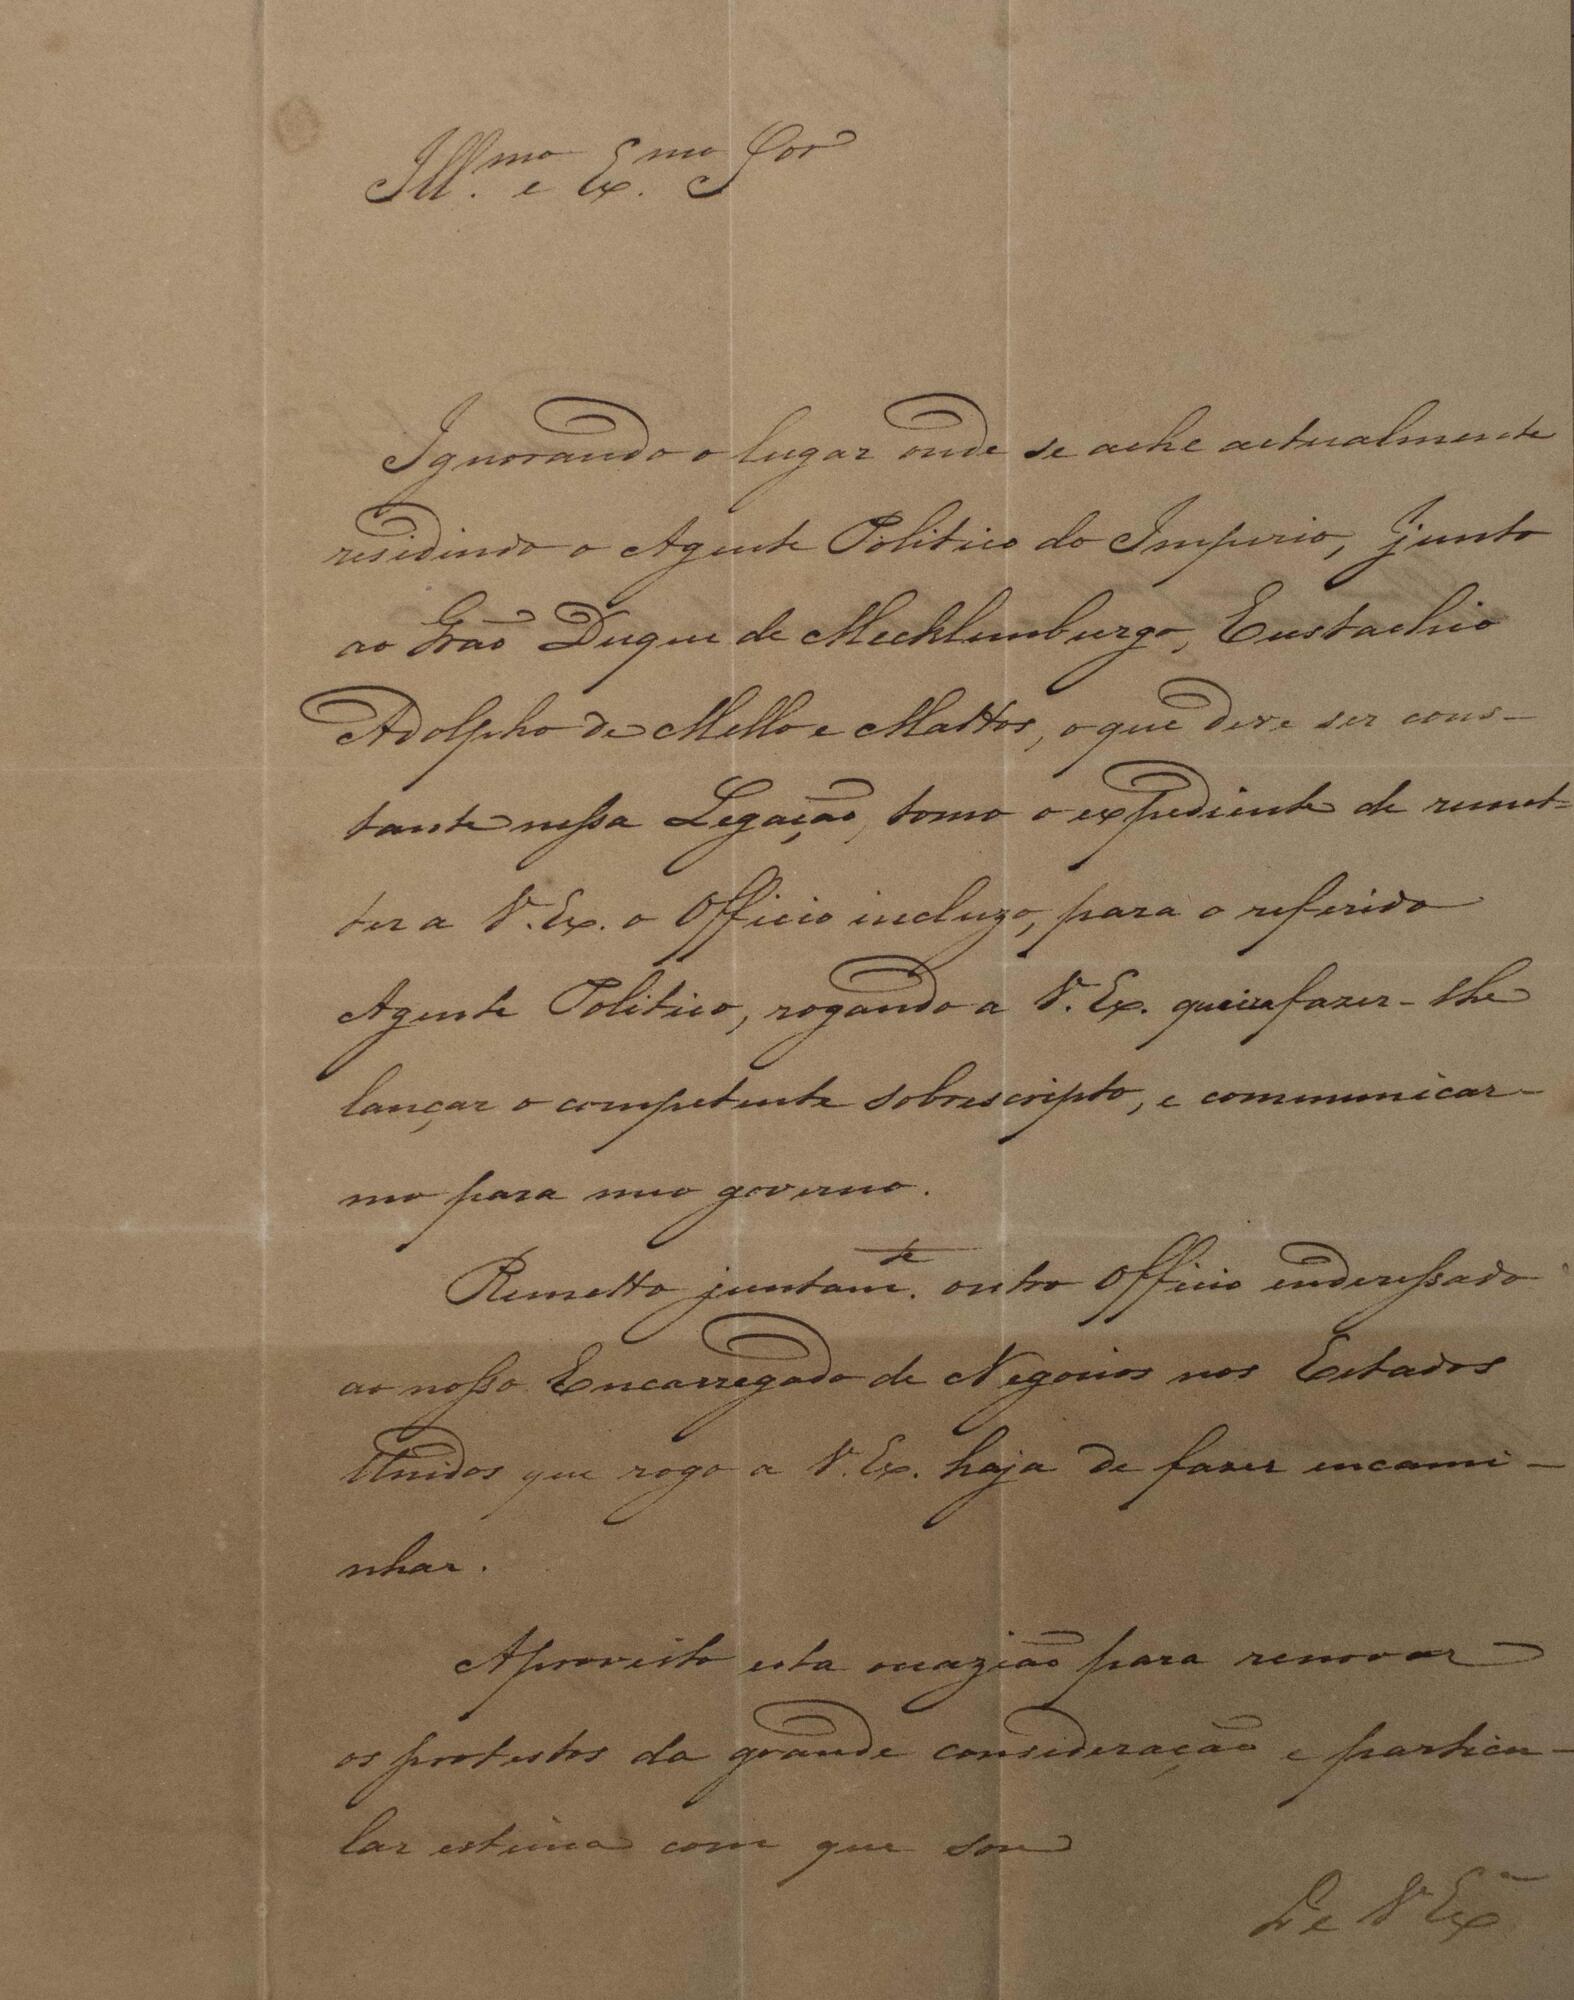 Ill.mo e Ex.mo Snr
Ignorando o lugar onde se ache actualmente
residindo o Agente Politico do Imperio, junto
ao Grão Duque de Mecklemburgo, Eustachio
Adolpho de Mello e Mattos, o que deve ser cons-
tante nessa Legação, tomo o expediente de remet-
ter a V. Ex. o Officio incluzo, para o referido
Agente Politico, rogando a V. Ex. queira fazer-lhe
lançar o competente sobrescripto, e communicar-
mo para meo governo.
Remetto juntam.te outro Officio enderessado
ao nosso Encarregado de Negocios nos Estados
Unidos que rogo a V. Ex. haja de fazer encami-
nhar.
Aproveito esta occazião para renovar
os protestos da grande consideração e particu-
lar estima com que sou
De V Ex